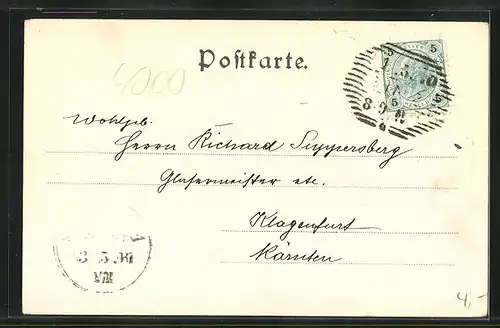 Postkarte.
4000
5 5
5 5
Wohlgeb.
Herrn Richard Suppersberg
Glasermeister etc.
Klagenfurt
Kärnten
3 5 00
4,-